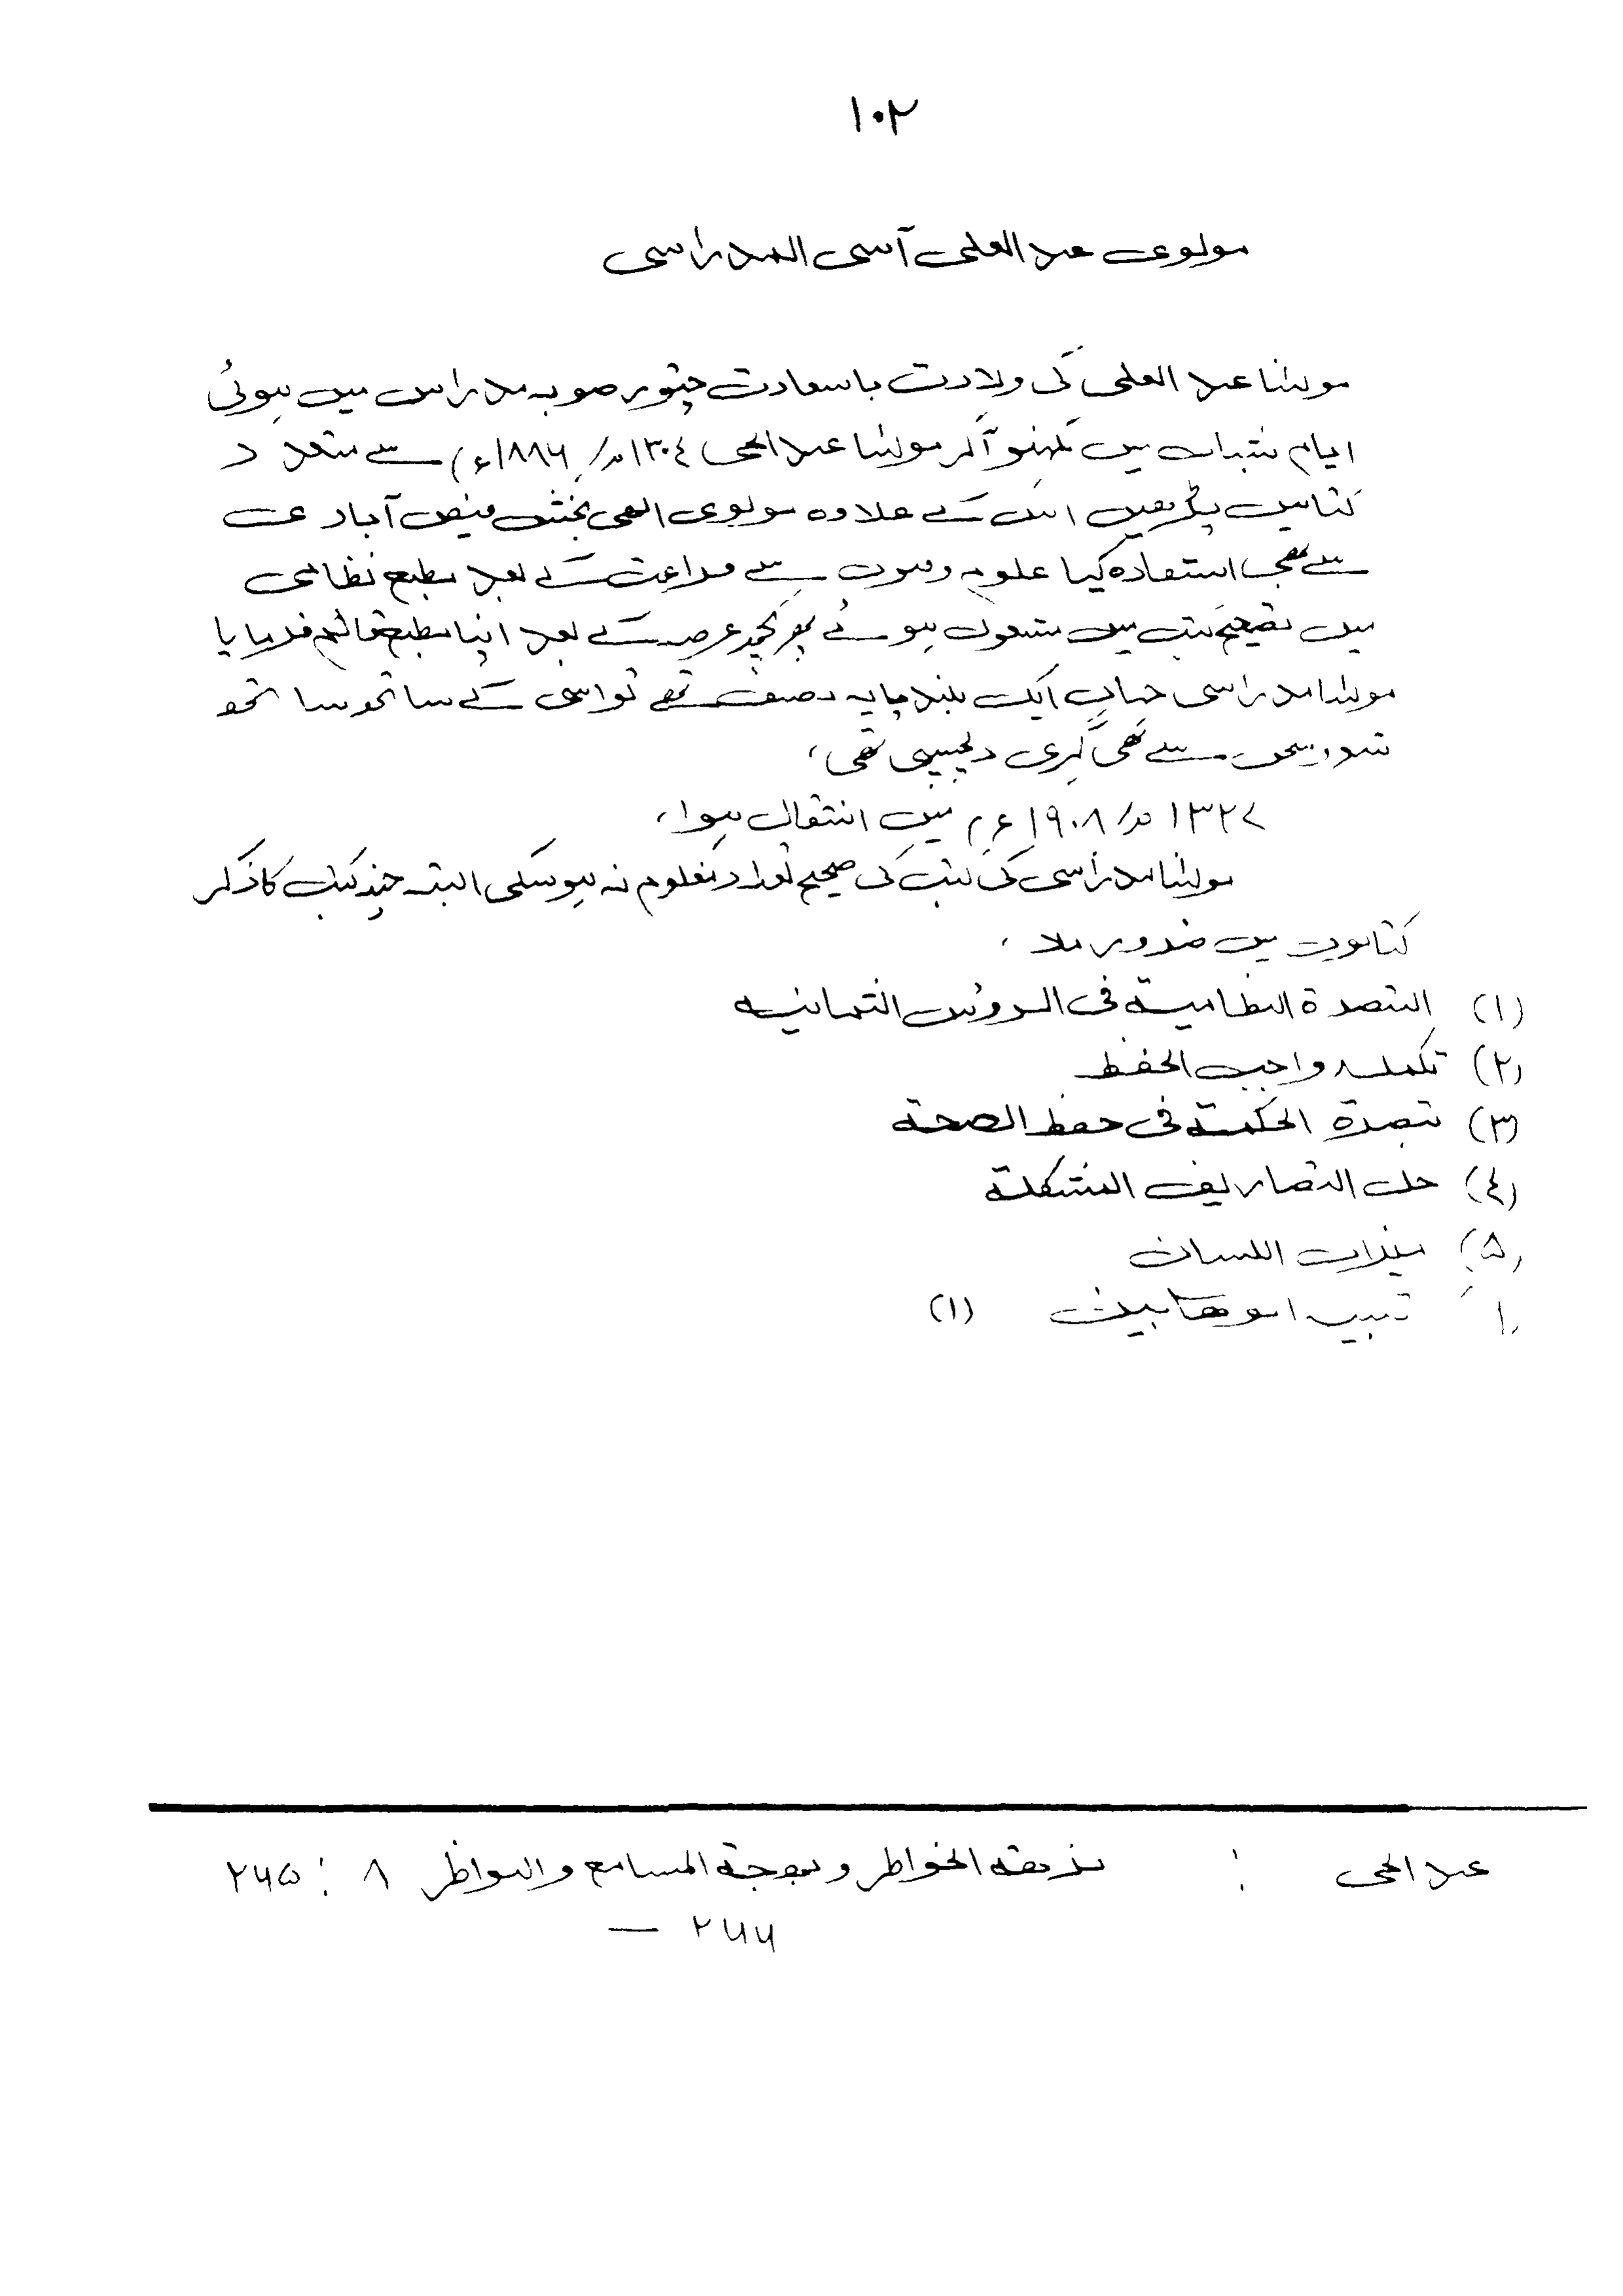 ۱۰۲
مولوی عبد العلی آسی المدراسی
مولٰنا عبد العلی کی ولادت باسعادت چتور صوبہ مدراس میں ہوئی
ایام شباب میں لکھنو آکر مولٰنا عبد الحی ۱۳۰٤ھ/ ۱۸۸۶ء) سے متعدد
کتابیں پڑھیں اس کے علاوہ مولوی الھی بخش فیض آبادی
سے بھی استفادہ کیا علوم و فنون سے فراغت کے بعد مطبع نظامی
میں تصحیح کتب میں مشغول ہوئے پھر کچھ عرصہ کے بعد اپنا مطبع قائم فرمایا
مولٰنا مدراسی جہاں ایک بلند پایہ مصنف تھے تو اسی کے ساتھ ساتھ
شعر و سخن سے بھی گہری دلچسپی تھی،
۱۳۲۷ھ/ ۱۹۰۸ء) میں انتقال ہوا،
مولٰنا مدراسی کی کتب کی صحیح تعداد معلوم نہ ہوسکی البتہ چند کتب کا ذکر
کتابوں میں ضرور ملا ،
(۱) التبصرة النظامية فی الدوئس الثمانیہ
(۲) تکملہ واجب الحفظ
(۳) تبصرة الحکمة فی حفظ الصحة
(٤) حل التصاریف المشکلة
(۵) میزان اللسان
تنبیہ الوھابین (۱)
عبد الحی : نزھة الخواطر و بھجة المسامع والنواظر ۸ : ۲۶۵
۲۶۶ —